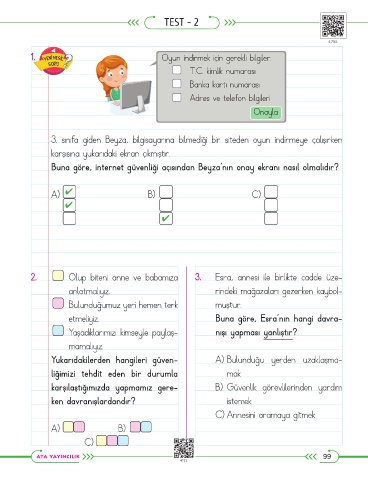 TEST - 2
1.
YENİ NESİL
SORU
Oyun indirmek için gerekli bilgiler
T.C. kimlik numarası
Banka kartı numarası
Adres ve telefon bilgileri
Onayla
3. sınıfa giden Beyza, bilgisayarına bilmediği bir siteden oyun indirmeye çalışırken
karşısına yukarıdaki ekran çıkmıştır.
Buna göre, internet güvenliği açısından Beyza'nın onay ekranı nasıl olmalıdır?
A) B) C)
2. Olup biteni anne ve babamıza
anlatmalıyız.
Bulunduğumuz yeri hemen terk
etmeliyiz.
Yaşadıklarımızı kimseyle paylaş-
mamalıyız.
Yukarıdakilerden hangileri güven-
liğimizi tehdit eden bir durumla
karşılaştığımızda yapmamız gere-
ken davranışlardandır?
A) B)
C)
3. Esra, annesi ile birlikte cadde üze-
rindeki mağazaları gezerken kaybol-
muştur.
Buna göre, Esra'nın hangi davra-
nışı yapması yanlıştır?
A) Bulunduğu yerden uzaklaşma-
mak
B) Güvenlik görevlilerinden yardım
istemek
C) Annesini aramaya gitmek
ATA YAYINCILIK
99